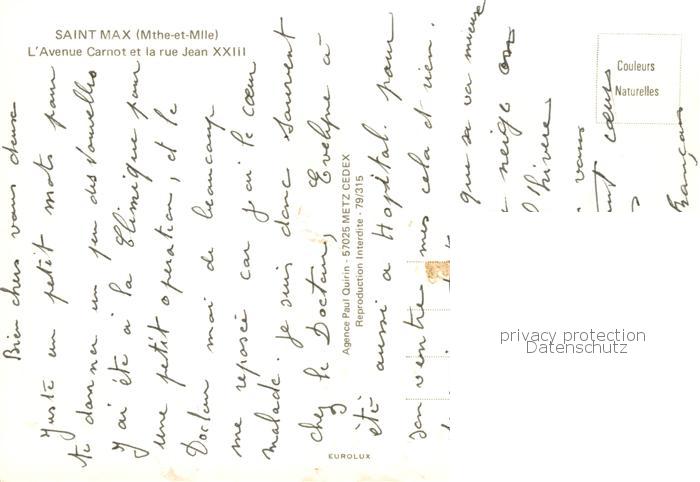 SAINT MAX (Mthe-et-Mlle)
L'Avenue Carnot et la rue Jean XXIII
Couleurs
Naturelles
Bien chers vous deux
Juste un petit mots pour
te donner un peu des nouvelles
J'ai été à la Clinique pour
une petit operation, et le
Docteur moi de beaucoup
me reposée car j'ai le cœur
malade. je suis donc souvent
chez le Docteur, Evelyne à
été aussi a Hopital. pour
son ventre mes cela et rien.
que sa va mieux
neige
l'hivere
vous
cœurs
Français
Agence Paul Quirin - 57025 METZ CEDEX
Reproduction Interdite - 79/315
EUROLUX
privacy protection
Datenschutz